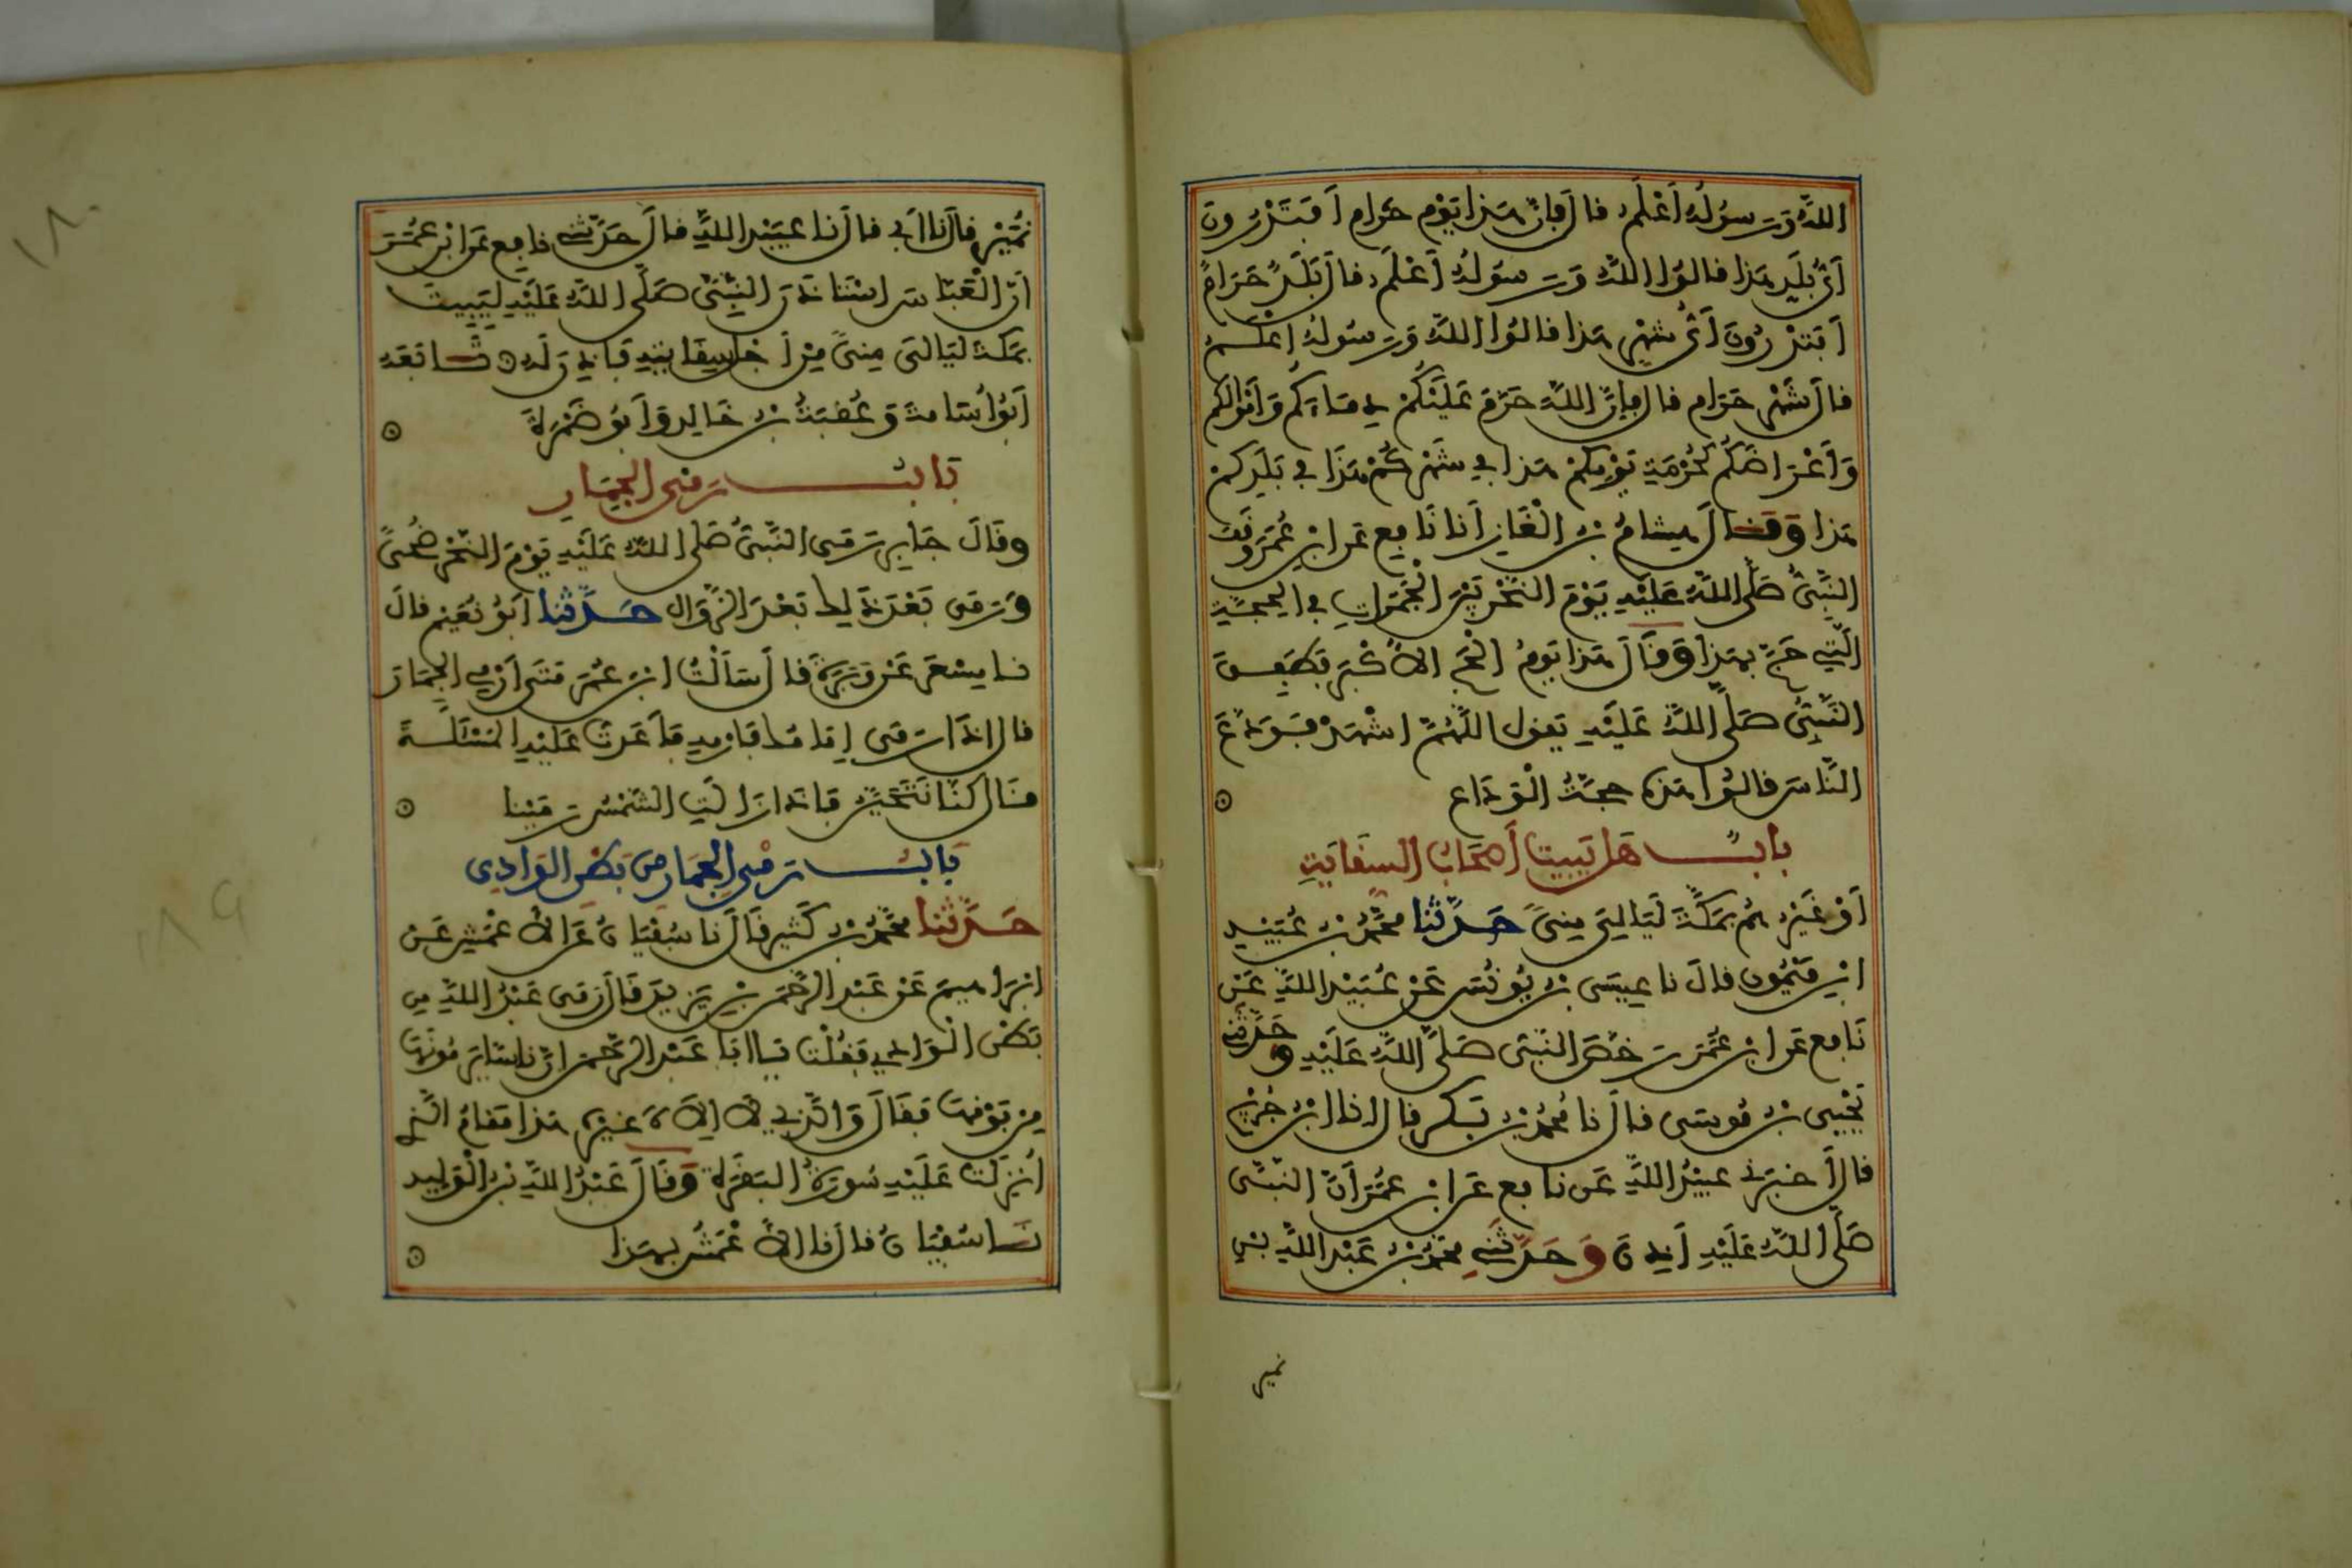 اللَّهُ وَرَسُولُهُ أَعْلَمُ قال فإنّ هذا يَوْم حَرام أفتَدْرُونَ
أَيُّ بَلَدٍ هذا قالوا اللَّهُ وَرَسُولُهُ أَعْلَمُ قال بَلَدٌ حَرَامٌ
أَفَتَدْرُونَ أَيُّ شَهْرٍ هذا قالوُا اللَّهُ وَرَسُولُهُ اعْلَمُ
قال شَهْرٌ حَرَام قال فإنَّ اللَّهَ حَرَّمَ عَلَيْكُمْ دِمَاءَكُم وَأمْوَالَكُم
وَأعْرَاضَكُم كَحُرْمَةِ يَوْمِكُمْ هذا في شَهْرِكُمْ هَذَا في بَلَدِكُمْ
هذا وَقَال هِشامُ بْنُ الْغَازِ أنا نَافِع عَن ابْنِ عُمَرَ وَقَفَ
النَّبِيُّ صَلَّى اللَّهُ عَلَيْهِ يَوْمَ النَّحْرِ بَيْنَ الْجَمَرَاتِ في الحجّةِ
الَّتِي حَجَّ بِهَذَا وَقَالَ هَذا يَوْمُ الْحَجِّ الأَكْبَرِ فَطَفِقَ
النَّبِيُّ صَلَّى اللَّهُ عَلَيْهِ يَقول اللَّهُمَّ اشْهَدْ فَوَدَّعَ
النَّاسَ فقالُوا هَذه حجَّةُ الْوَدَاع
بابٌ هَل يَبِيتُ أَصْحَابُ السِّقَايَةِ
أوْ غَيْرُهُمْ بِمَكَّةَ لَيَالِيَ مِنىً حَدَّثَنا مُحَمَّدُ بْنُ عُبَيْدِ
ابْنِ مَيْمُونٍ قالَ نا عِيسَى بْنُ يُونُسَ عَنْ عُبَيْدِ اللَّهِ عَنْ
نَافِع عَن ابْنِ عُمَرَ رَخَّصَ النَّبِيُّ صَلَّى اللَّهُ عَلَيْهِ وحَدَّثَنِي
يَحْيَى بْنُ مُوسَى قالَ نا مُحَمَّدُ بْنُ بَكْرٍ قالَ انا ابْنُ جُرَيْج
قال أَخْبَرَنِي عُبَيْدُ اللَّهِ عَن نافِع عَن ابْنِ عُمَرَ أَنَّ النَّبِيَّ
صَلَّى اللَّهُ عَلَيْهِ أَذِنَ وَحَدَّثَنِي مُحَمَّدُ بْنُ عَبْدِ اللَّهِ بْنِ
نمير
نُمَيْرٍ قالَ نا أَبِي قالَ نا عُبَيْدُ اللَّهِ قالَ حَدَّثَنِي نافِع عَن ابْنِ عُمَرَ
أَنَّ الْعَبَّاسَ اسْتَاذَنَ النَّبِيَّ صَلَّى اللَّهُ عَلَيْهِ لِيَبِيتَ
بِمَكَّةَ لَيَالِيَ مِنىً مِنْ أَجْلِ سِقَايَتِهِ فَأَذِنَ لَهُ تَابَعَهُ
أَبُو أُسَامَةَ وَعُقْبَةُ بْنُ خَالِدٍ وَأَبُو ضَمْرَةَ
بَابُ رَمْيِ الْجِمَارِ
وقَالَ جَابِر رَمَى النَّبِيُّ صَلَّى اللَّهُ عَلَيْهِ يَوْمَ النَّحْرِ ضُحىً
وَرَمَى بَعْدَ ذَلِكَ بَعْدَ الزَّوَالِ حَدَّثنا أَبُو نُعَيْمٍ قالَ
نا مِسْعَر عَنْ وَبَرَةَ قالَ سَأَلْتُ ابْنَ عُمَرَ مَتَى أَرْمِي الْجِمَارَ
قال اذَا رَمَى إمَامُكَ فَارْمِهِ فَأَعَدْتُ عَلَيْهِ الْمَسْئَلَةَ
قَالَ كُنَّا نَتَحَيَّنُ فإذا زَالَتِ الشَّمْسُ رَمَيْنا
بَابُ رَمْيِ الجِمَارِ مِن بَطْنِ الوَادِي
حَدَّثنا مُحَمَّدُ بْنُ كَثِيرٍ قَالَ نا سُفْيَانُ عَنِ الأَعْمَشِ عَنْ
ابْرَاهِيمَ عَنْ عَبْدِ الرَّحْمَنِ بْنِ يَزِيدَ قَالَ رَمَى عَبْدُ اللَّهِ مِن
بَطْنِ الْوَادِي فَقُلْتُ يَا أَبَا عَبْدِ الرَّحْمَن إنَّ ناسًا يَرْمُونَهَا
مِنْ فَوْقِهَا فَقَالَ وَالَّذِي لاَ إلَهَ غَيْرُهُ هذا مَقامُ الَّذِي
أُنْزِلَتْ عَلَيْهِ سُورَةُ الْبَقَرَةِ وَقَالَ عَبْدُ اللَّهِ بْنُ الْوَلِيدِ
نَا سُفْيَانُ قالَ نا الأَعْمَشُ بِهَذا